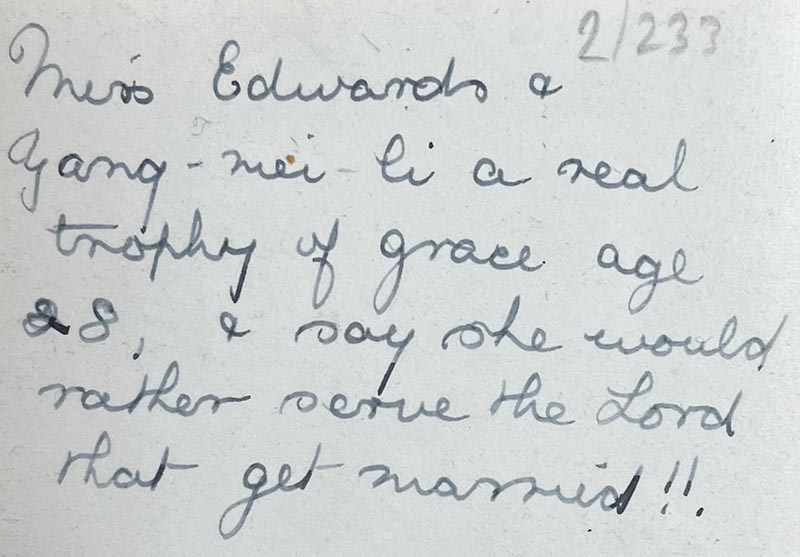 2/233
Miss Edwards &
Yang-mei-li a real
trophy of grace age
28, & say she would
rather serve the Lord
that get married!!.